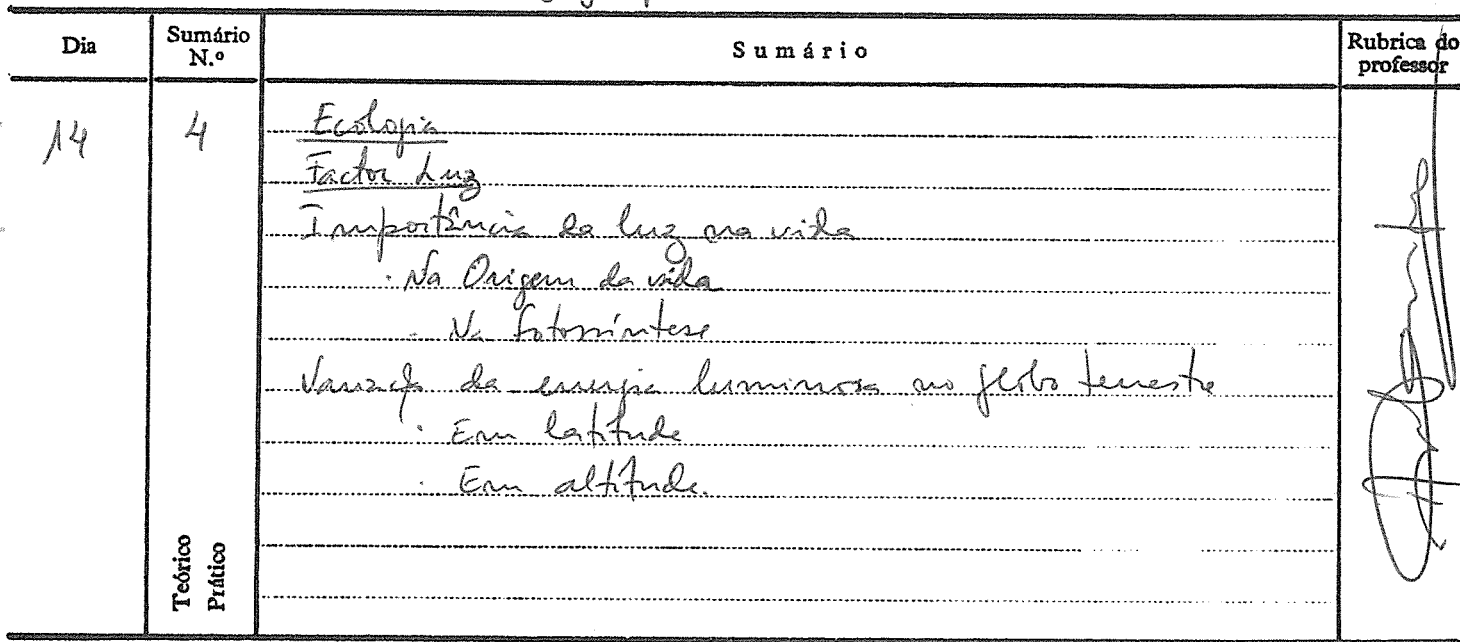 Dia
Sumário N.º
Sumário
Rubrica do professor
14
4
Ecologia
Factor Luz
Importância da luz na vida
· Na Origem da vida
· Na fotossíntese
Variação da energia luminosa no globo terrestre
· Em latitude
· Em altitude.
Teórico
Prático